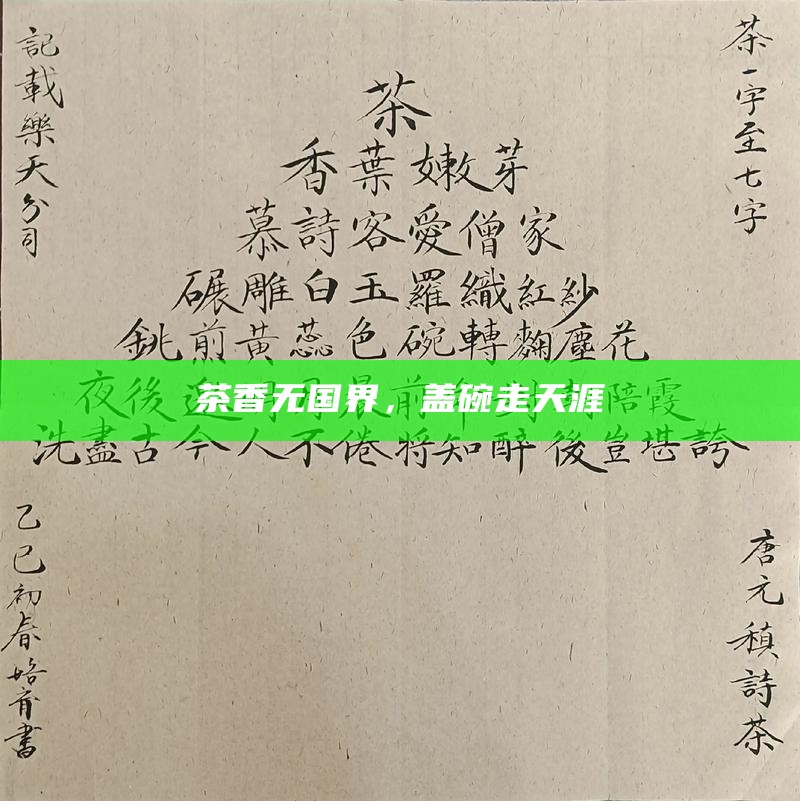 茶一字至七字
茶
香葉嫩芽
慕詩客愛僧家
碾雕白玉羅織紅紗
銚煎黃蕊色碗轉麴塵花
夜後晨前陪霞
茶香无国界，盖碗走天涯
洗盡古今人不倦將知醉後豈堪誇
記載樂天分司
唐元稹詩茶
乙巳初春育書